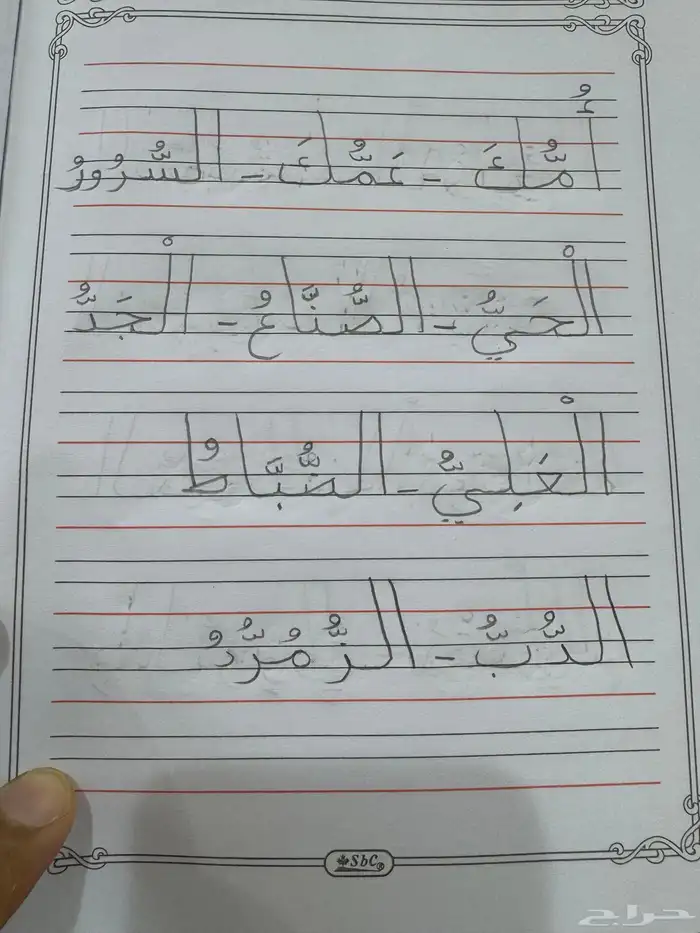 أُمُّكَ - عَمُّكَ - السُّرُورُ
الْحَيُّ - الصُّنَّاعُ - الْجَدُّ
- الضُّبَّاطُ
الدُّبُّ - الزُّمُرُّدُ
SbC
حراج